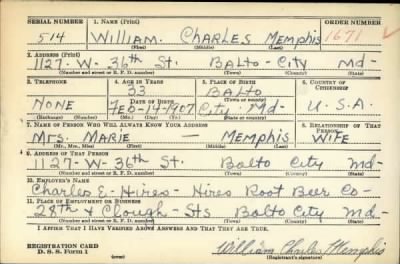 SERIAL NUMBER 1. NAME (Print) ORDER NUMBER
514 William Charles Memphis 1671
(First) (Middle) (Last)
2. ADDRESS (Print)
1127-W-36th St. Balto-City Md-
(Number and street or R. F. D. number) (Town) (County) (State)
3. TELEPHONE 4. AGE IN YEARS 5. PLACE OF BIRTH 6. COUNTRY OF CITIZENSHIP
33 Balto
DATE OF BIRTH (Town or county)
None Feb-14-1907 City Md- U.S.A.
(Exchange) (Number) (Mo.) (Day) (Yr.) (State or country)
7. NAME OF PERSON WHO WILL ALWAYS KNOW YOUR ADDRESS 8. RELATIONSHIP OF THAT PERSON
Mrs. Marie — Memphis Wife
(Mr., Mrs., Miss) (First) (Middle) (Last)
9. ADDRESS OF THAT PERSON
1127-W-36th St. Balto City Md-
(Number and street or R. F. D. number) (Town) (County) (State)
10. EMPLOYER'S NAME
Charles E-Hires- Hires Root Beer Co-
11. PLACE OF EMPLOYMENT OR BUSINESS
28th & Clough-Sts Balto City Md-
(Number and street or R. F. D. number) (Town) (County) (State)
I AFFIRM THAT I HAVE VERIFIED ABOVE ANSWERS AND THAT THEY ARE TRUE.
REGISTRATION CARD
D. S. S. Form 1 William Charles Memphis
(over) (Registrant's signature)